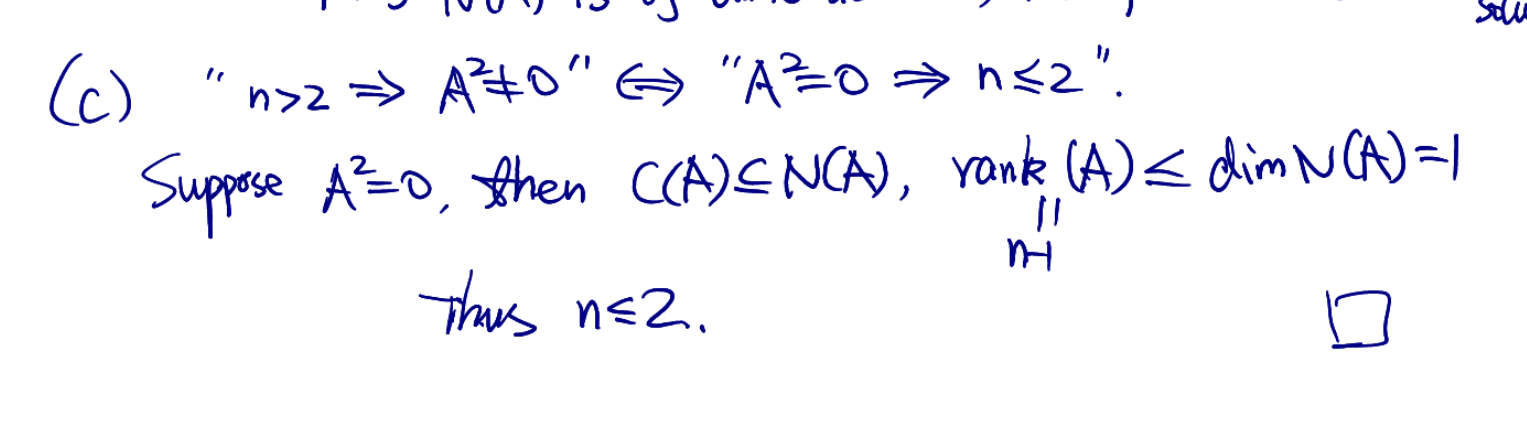 N(A) is of
solu
(c) "n>2 ⇒ A²≠0" ⟺ "A²=0 ⇒ n≤2".
Suppose A²=0, then C(A)⊆N(A), rank(A)≤dim N(A)=1
||
n-1
Thus n≤2.
□